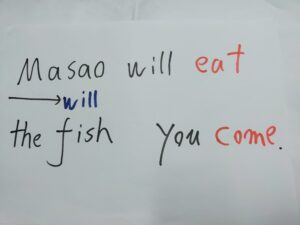 Masao will eat
will
the fish you come.